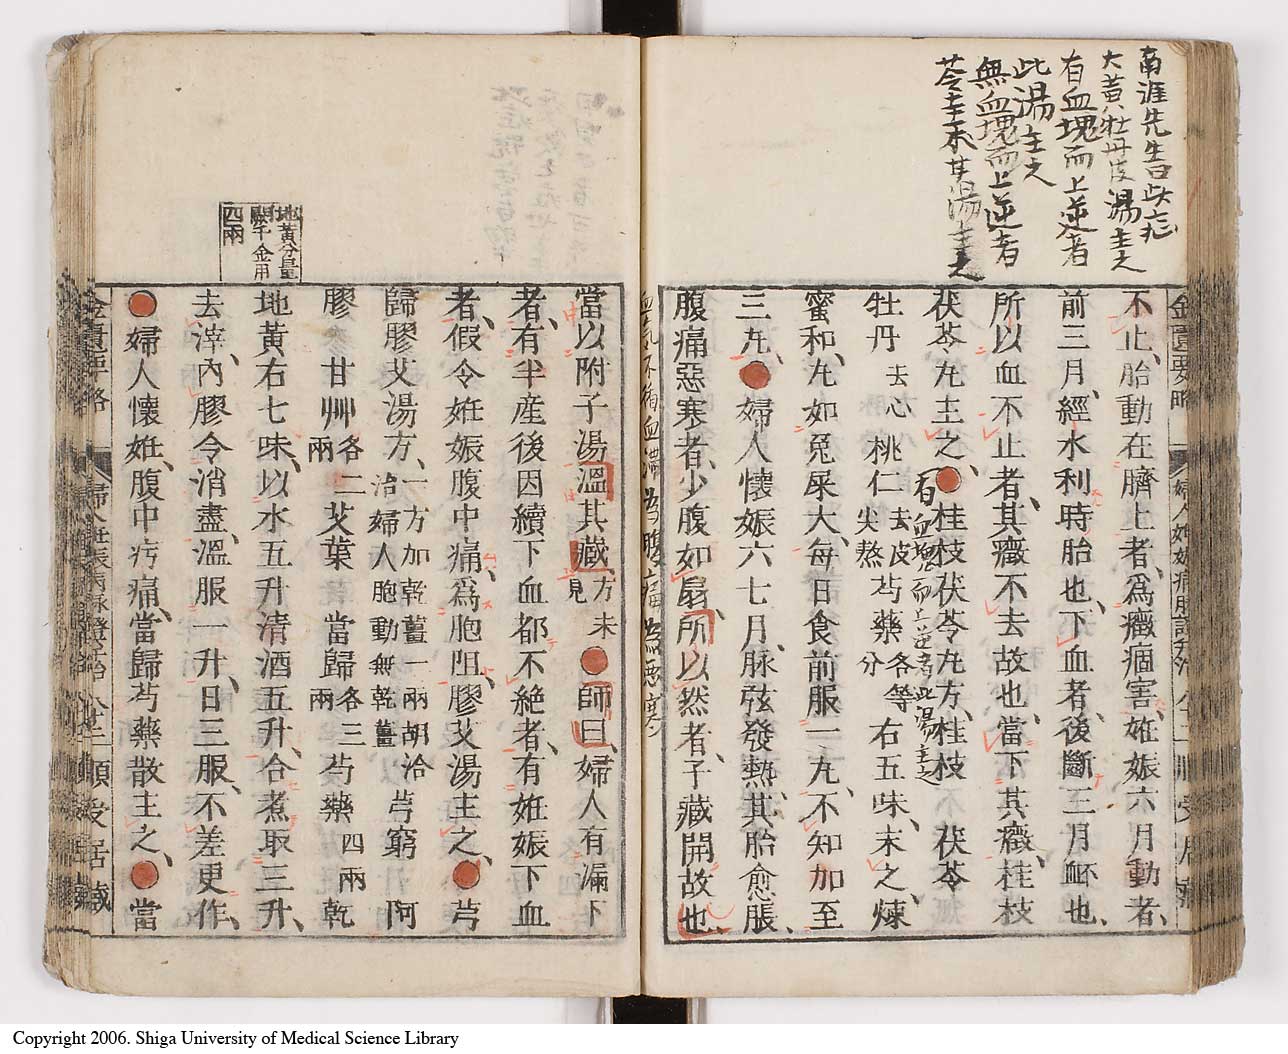 南涯先生曰此忘
大黄牡丹皮湯主之
有血塊而上逆者
此湯主之
無血塊而上逆者
苓桂 其湯主之
金匱要略
婦人妊娠病脉證并治
不止胎動在臍上者、爲癥痼害、妊娠六月動者、
前三月、經水利時胎也、下血者、後斷三月衃也、
所以血不止者、其癥不去故也、當下其癥、桂枝
茯苓丸主之、●桂枝茯苓丸方、桂枝 茯苓
有血塊而上逆者此湯主之
牡丹去心 桃仁去皮尖熬 芍藥各等分 右五味、末之、煉
蜜和、丸如兎屎大、每日食前服一丸、不知加至
三丸、●婦人懷娠六七月、脉弦發熱、其胎愈脹、
腹痛惡寒者、少腹如扇、所以然者、子藏開故也、
血氣不循血滯爲腹痛爲惡寒
當以附子湯溫其藏、方未見●師曰、婦人有漏下
者、有半産後因續下血都不絶者、有妊娠下血
者、假令妊娠腹中痛、爲胞阻、膠艾湯主之、●芎
歸膠艾湯方、一方加乾薑一兩胡洽治婦人胞動無乾薑 芎窮 阿
膠 甘艸各二兩 艾葉 當歸各三兩 芍藥四兩 乾
地黃右七味、以水五升清酒五升、合煮取三升、
去滓、內膠令消盡、溫服一升、日三服、不差更作、
●婦人懷妊、腹中㽲痛、當歸芍藥散主之、●當
地黃分量
闕千金用
四兩
金匱要略
婦人妊娠病脉證并治 順受居藏
Copyright 2006. Shiga University of Medical Science Library